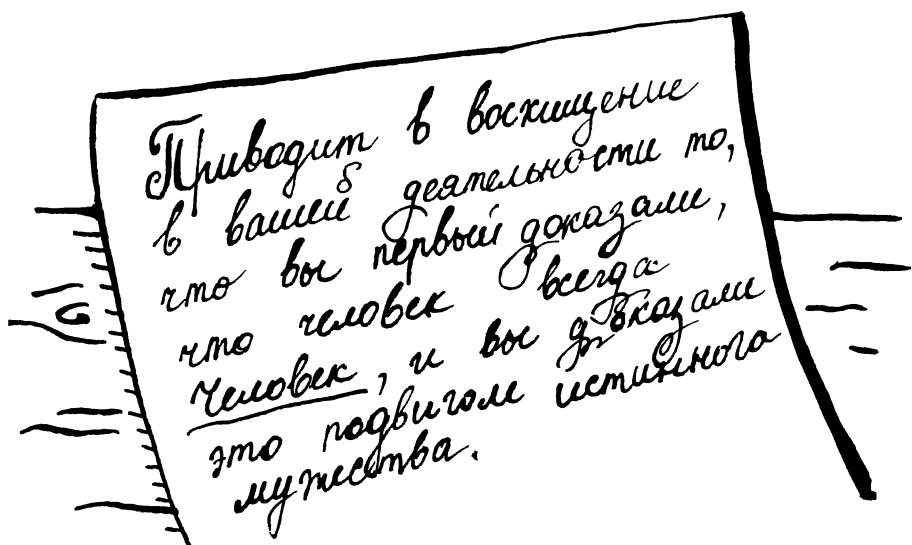 Приводит в восхищение
в вашей деятельности то,
что вы первый доказали,
что человек всегда
человек, и вы доказали
это подвигом истинного
мужества.